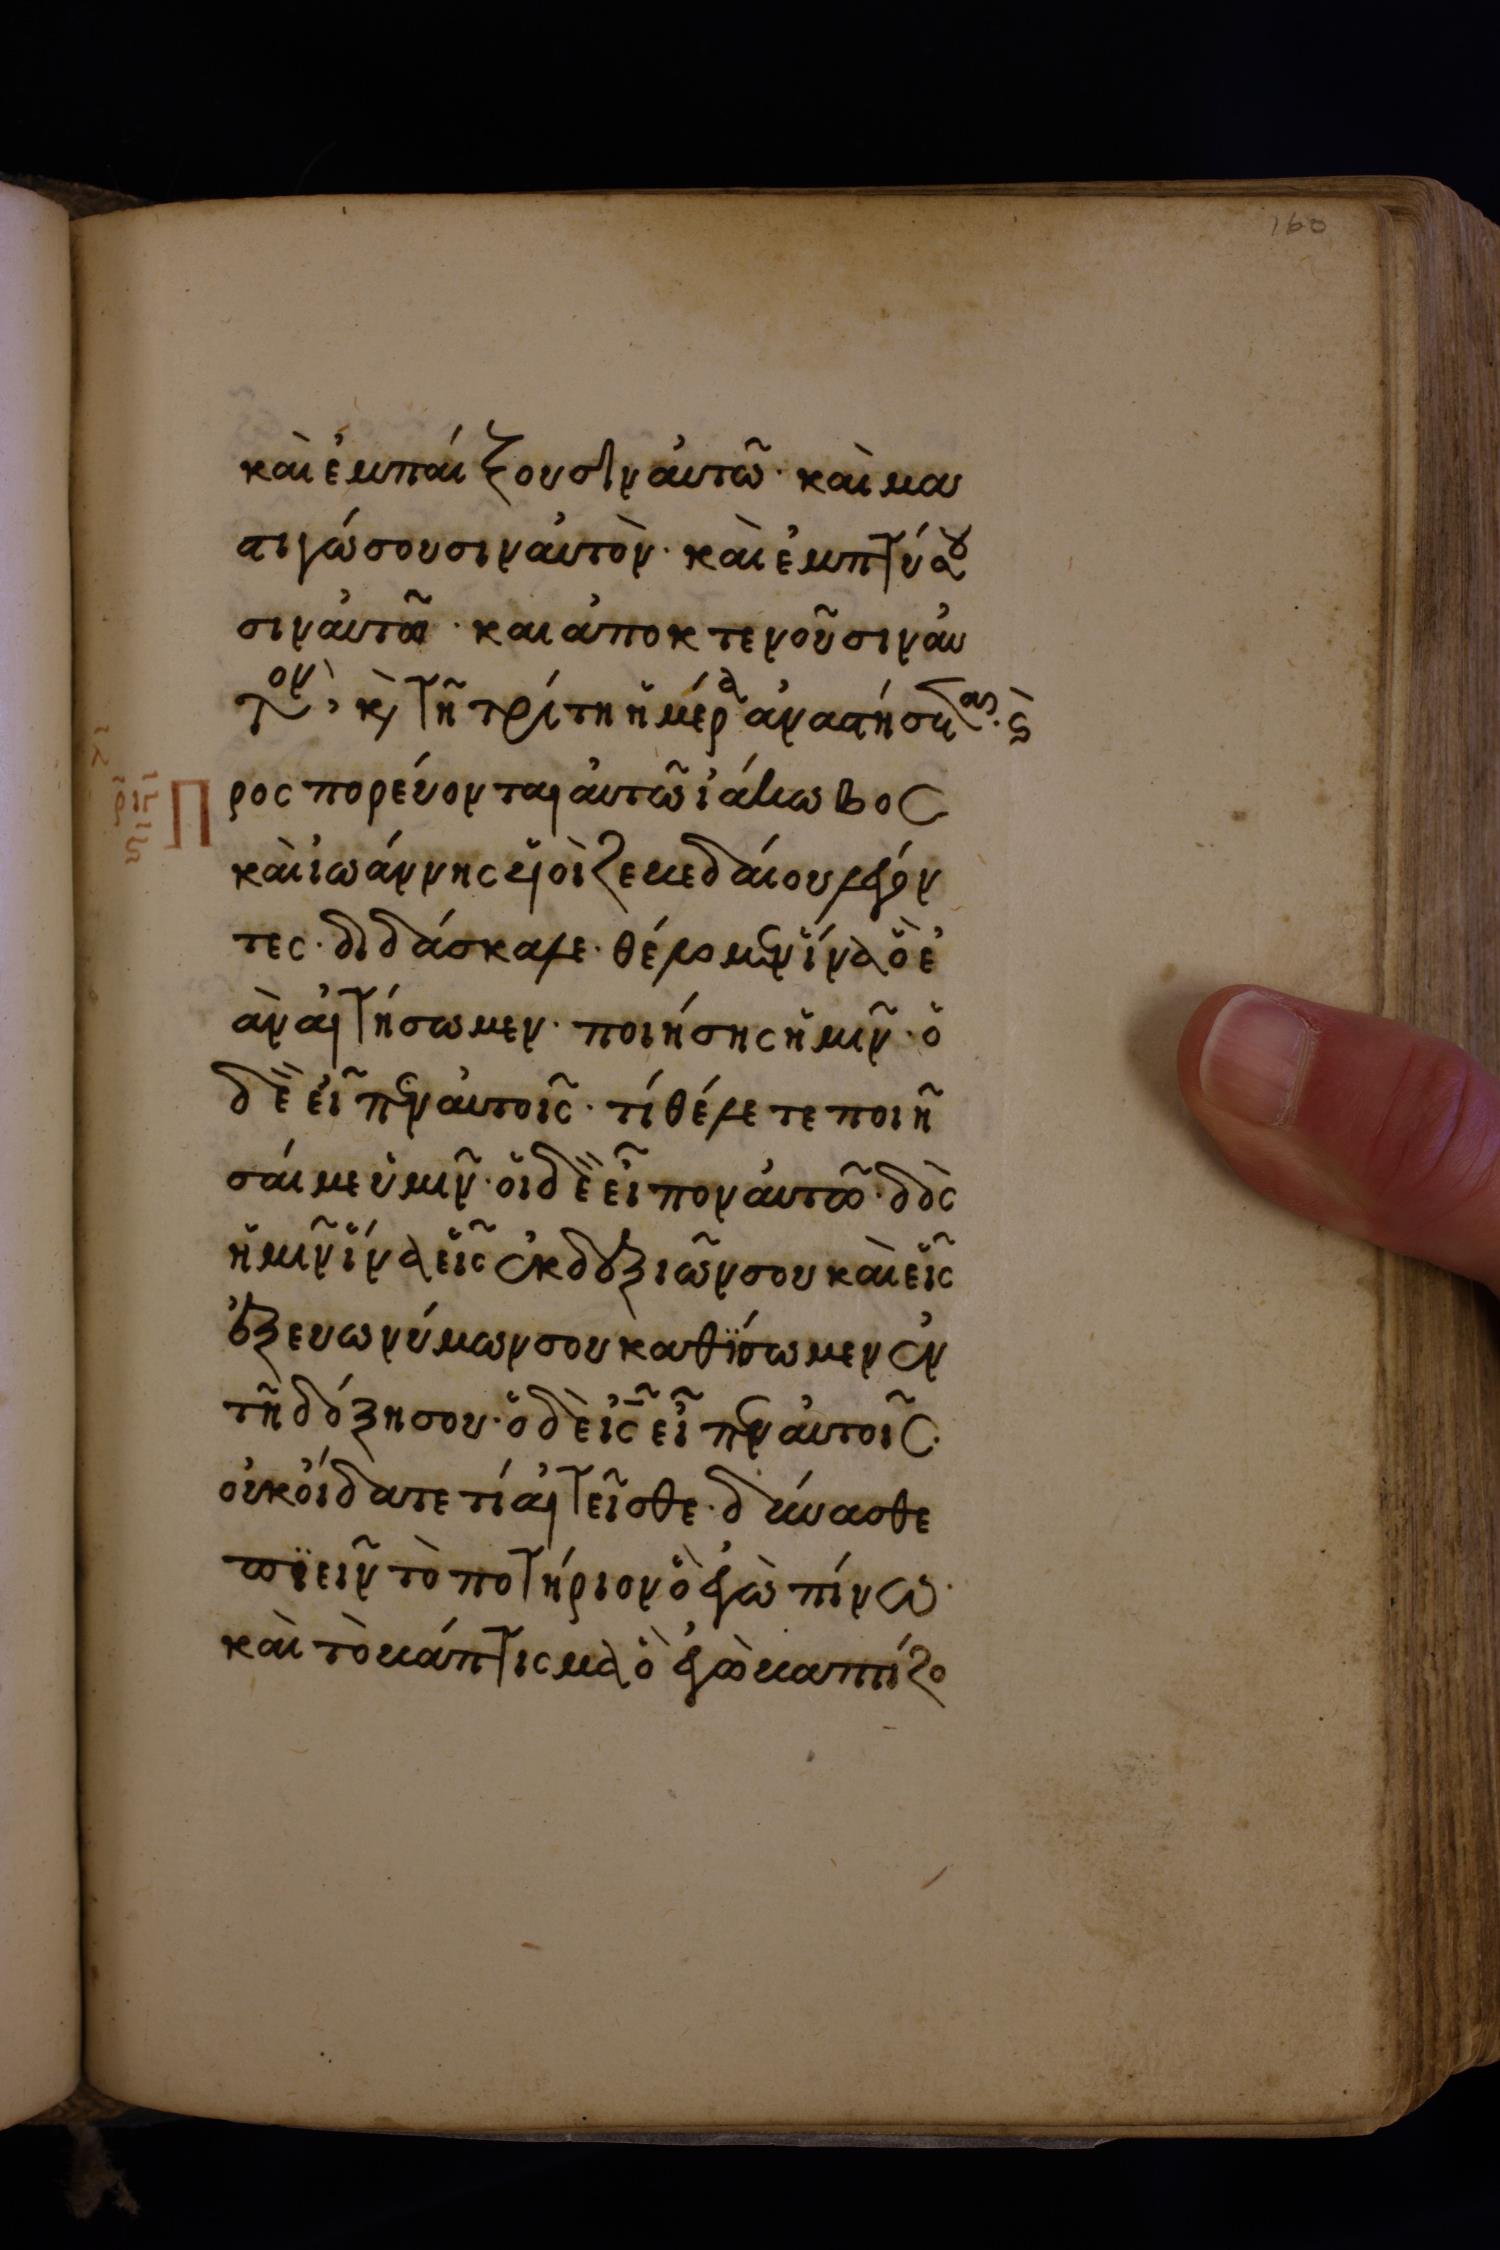 160
καὶ ἐμπαίξουσιν ἀυτῶ· καὶ μα
στιγώσουσιν ἀυτὸν· καὶ ἐμπτύσου
σιν ἀυτῶ· και ἀποκτενοῦσιν ἀυ
τὸν· κ̀ τῆ τρίτη ἡμέρα ἀναστήσεται· ϛ̀
Προσπορέυονται ἀυτῶ ἰάκωβος
καὶ ἰωάννης ὑιοὶ ζεβεδάιου λέγον
τες· διδάσκαλε· θέλομεν ἵνα ὃ ἐ
ὰν ἀιτήσωμεν· ποιήσης ἡμῖν· ὁ
δὲ εἶπεν ἀυτοῖς· τί θέλετε ποιῆ
σάι με ὑμῖν· ὁι δὲ εἶπον ἀυτῶ· δὸς
ἡμῖν ἵνα εἷς ἐκ δεξιῶν σου καὶ εἷς
ἐξ ευωνύμων σου καθΐσωμεν ἐν
τῆ δόξη σου· ὁ δὲ ις̅ εἶπεν ἀυτοῖς·
οὐκ ὀίδατε τί ἀιτεῖσθε· δύνασθε
πϊεῖν τὸ ποτήριον ὃ ἐγὼ πίνω·
καὶ τὸ βάπτισμα ὃ ἐγὼ βαπτίζο